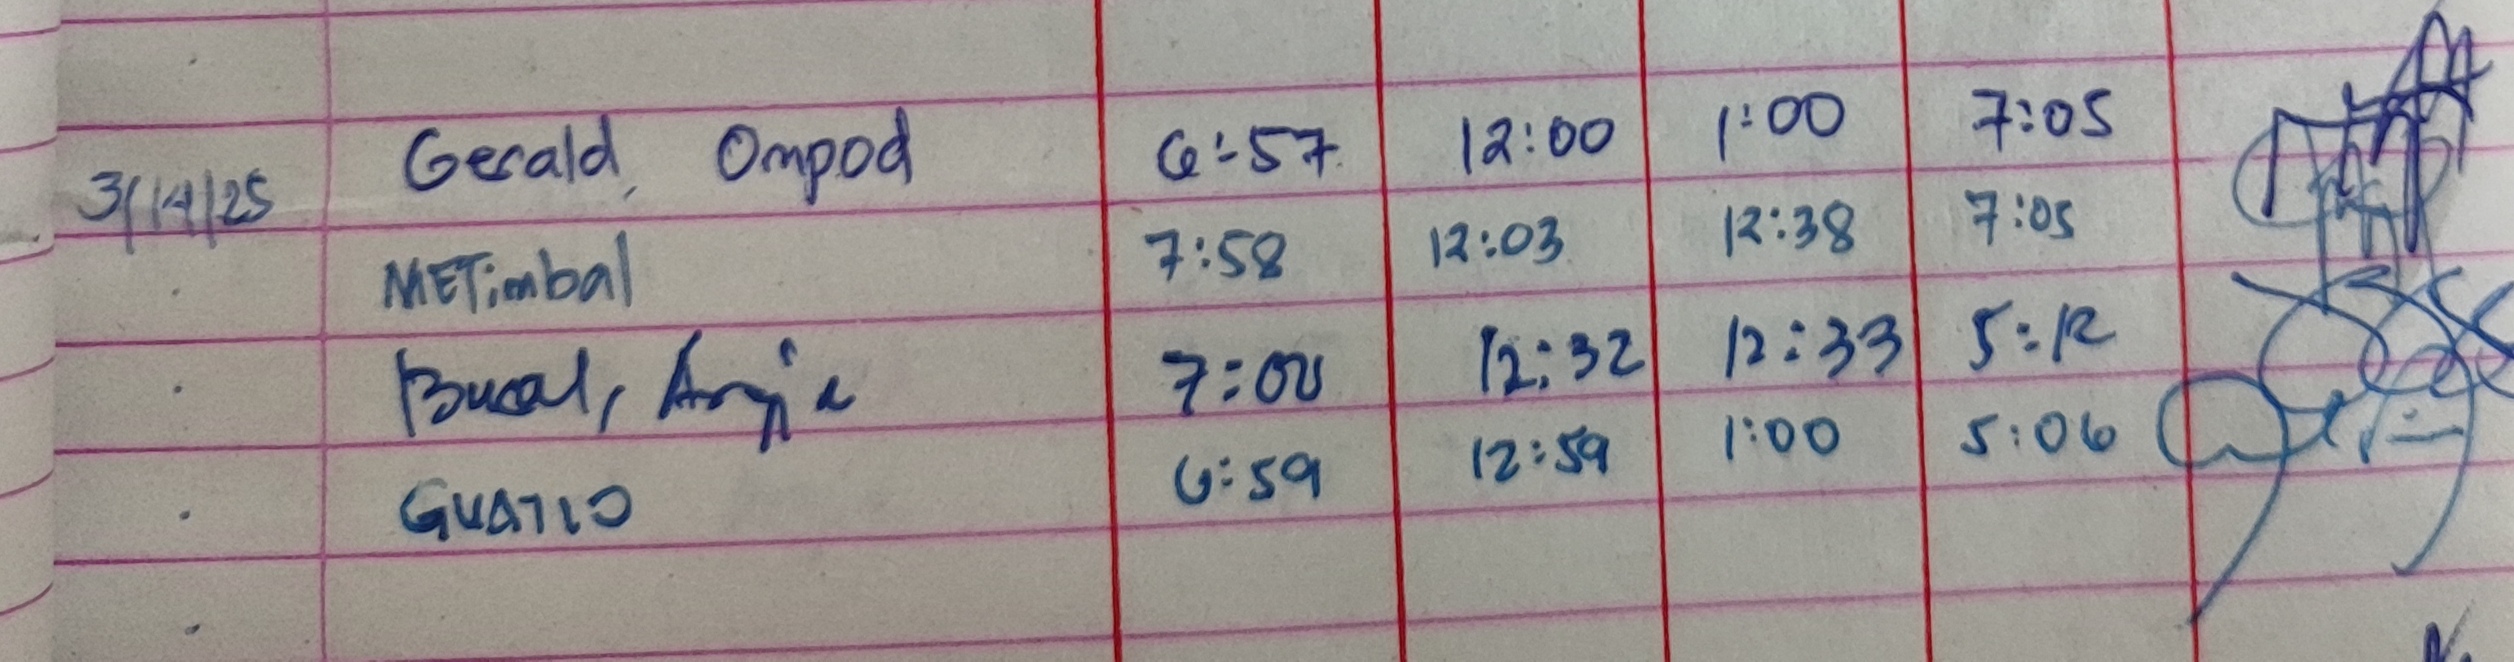 Gerald, Ompod 6:57 12:00 1:00 7:05
3/14/25
METimbal 7:58 12:03 12:38 7:05
Bucal, Angie 7:00 12:32 12:33 5:12
GUATIO 6:59 12:59 1:00 5:06